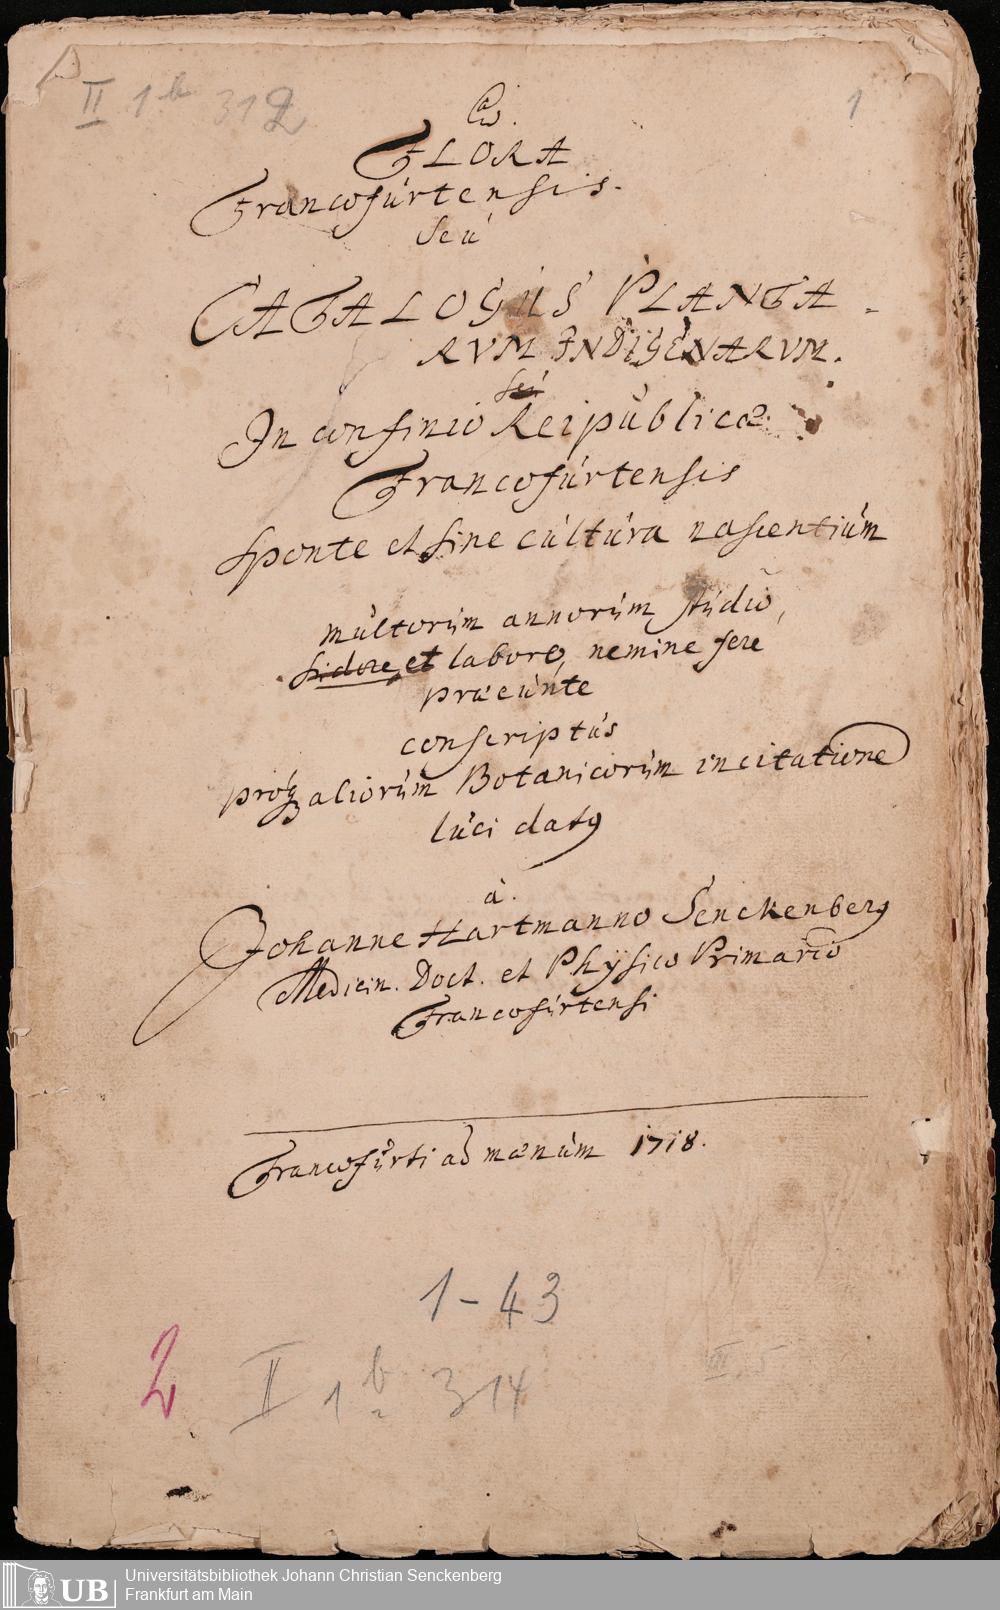 II 1 b 312
1
FLORA
Francofurtensis.
seu
CATALOGUS PLANTA-
RVM INDIGENARVM.
seu
In confinio Reipublicæ
Francofurtensis
sponte et sine cultura nascentium
multorum annorum studio,
sudore, et labore, nemine fere
præeunte
conscriptus
aliorum Botanicorum incitatione
luci datus
à.
Johanne Hartmanno Senckenberg
Medicin. Doct. et Physico Primario
Francofurtensi
Francofurti ad mænum 1718.
1-43
2
II 1 b 314
III, 5
UB
Universitätsbibliothek Johann Christian Senckenberg
Frankfurt am Main